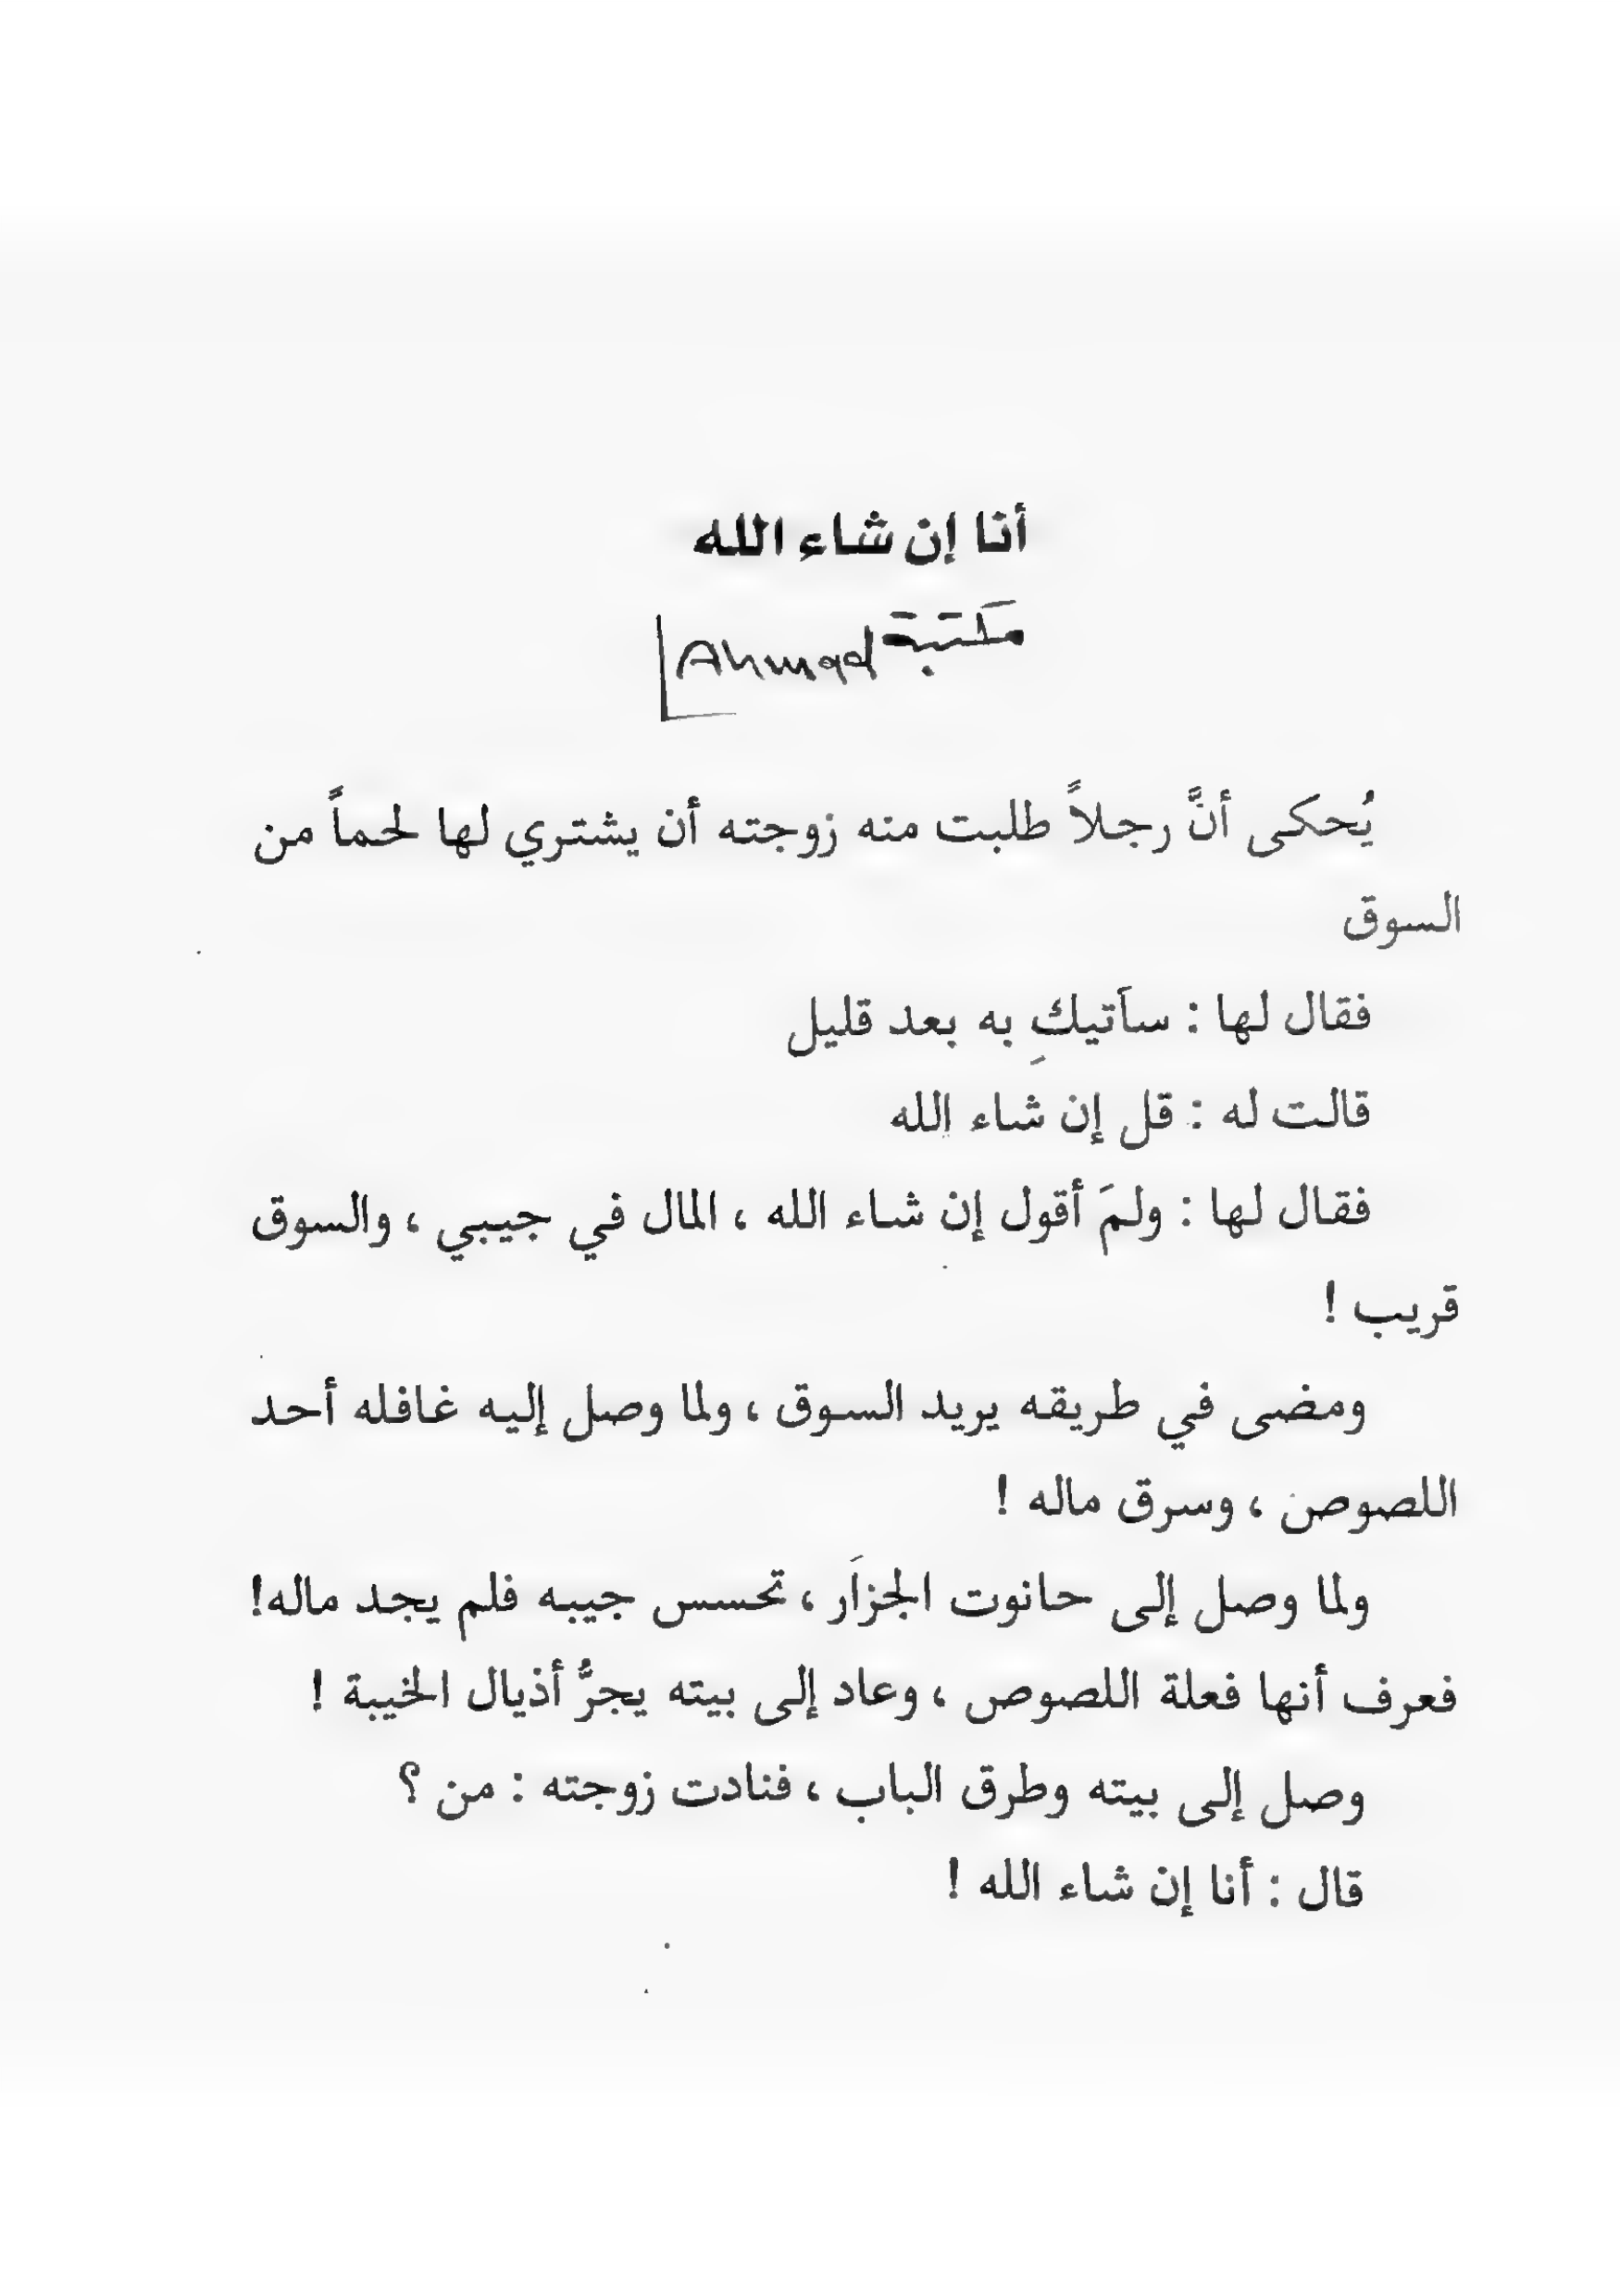 أنا إن شاء الله
مكتبة Ahmad
يُحكى أنَّ رجلاً طلبت منه زوجته أن يشتري لها لحماً من
السوق
فقال لها : سآتيكِ به بعد قليل
قالت له : قل إن شاء الله
فقال لها : ولمَ أقول إن شاء الله ، المال في جيبي ، والسوق
قريب !
ومضى في طريقه يريد السوق ، ولما وصل إليه غافله أحد
اللصوص ، وسرق ماله !
ولما وصل إلى حانوت الجزاَر ، تحسس جيبه فلم يجد ماله!
فعرف أنها فعلة اللصوص ، وعاد إلى بيته يجرُّ أذيال الخيبة !
وصل إلى بيته وطرق الباب ، فنادت زوجته : من ؟
قال : أنا إن شاء الله !